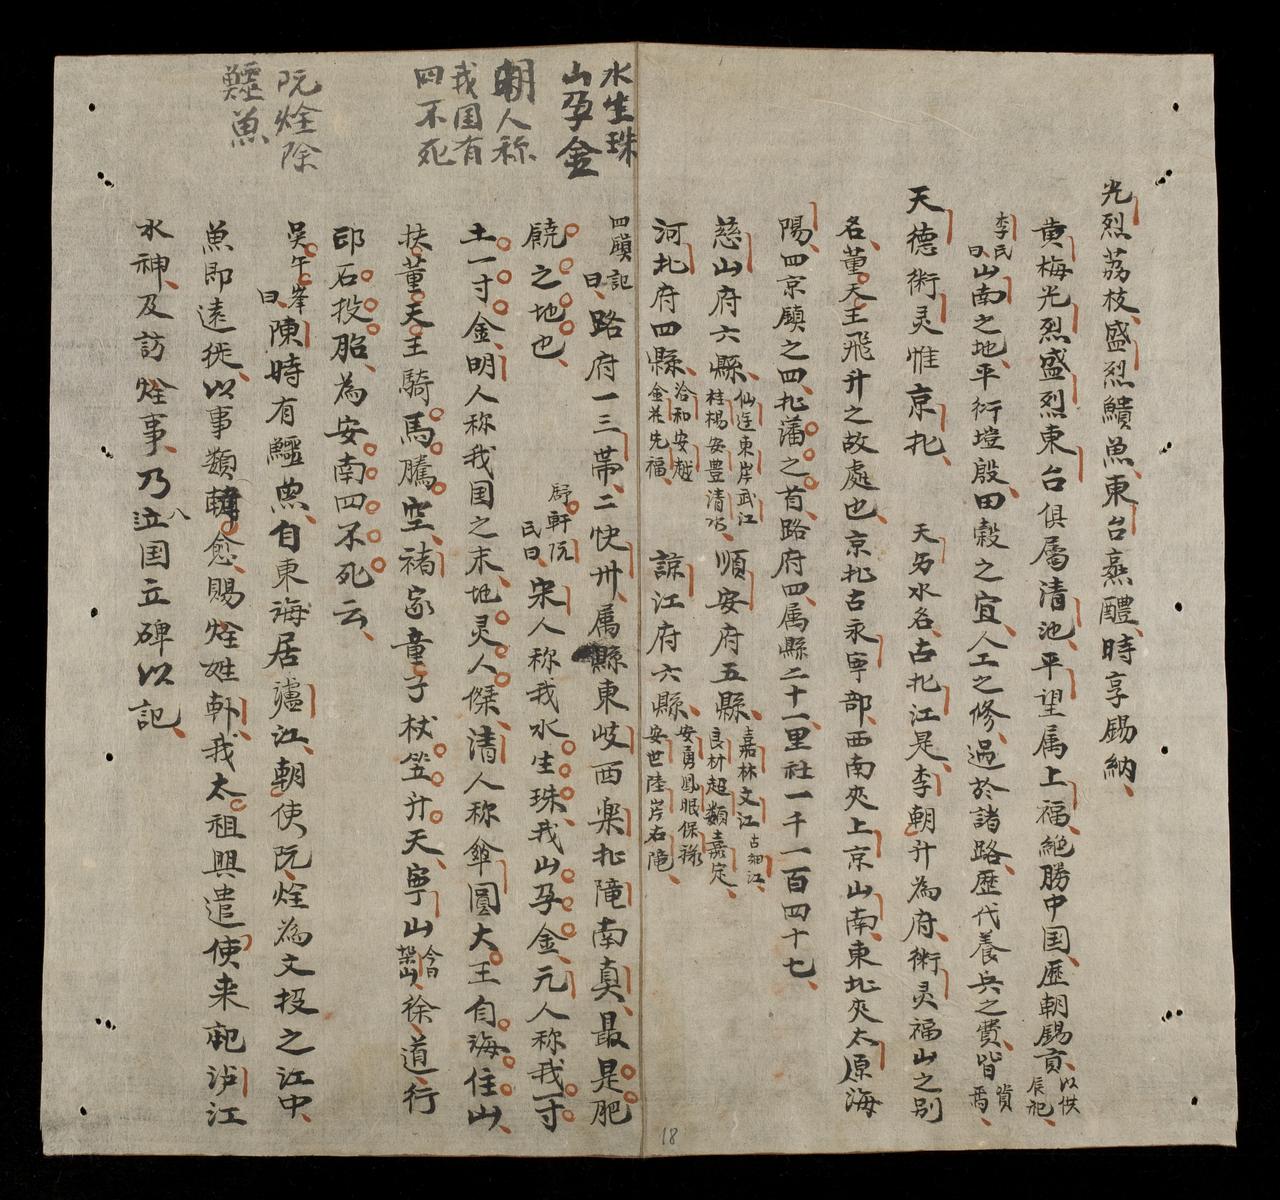 光烈荔枝盛烈鱝魚東台燕醴時享錫納
黄梅光烈盛烈東台俱屬清池平望属上福絶勝中国歷朝錫貢以供辰祀
李氏曰山南之地平衍塏殷田穀之宜人工之修過於諸路歷代養兵之費皆資焉
天德術灵惟京北
天另水名古北江是李朝升為府術灵福山之别
名董天王飛升之故處也京北古永寧部西南夾上京山南東北夾太原海
陽四京鎮之四北藩之首路府四属縣二十一里社一千一百四十七
慈山府六縣仙逰東岸武江桂楊安豊清水順安府五縣嘉林文江古細江良材超類嘉定
河北府四縣洽和安越金華先福諒江府六縣安勇鳳眼保祿安世陸岸右隴
四鎮記曰路府一三帯二快州属縣東岐西樂北隴南真最是肥
饒之地也
舒軒阮氏曰宋人称我水生珠我山孕金元人称我一寸
土一寸金明人称我国之末地灵人傑清人称傘圓大王自海住山
扶董天王騎馬騰空禇家童子杖笠升天寧山今曰架山徐道行
印石投胎為安南四不死云
吳午峯曰陳時有鱷魚自東海居瀘江朝使阮烇為文投之江中
魚即遠徙以事類韓愈賜烇姓韩我太祖興遣使来祀泸江
水神及訪烇事乃泣国立碑以記
水生珠
山孕金
朝人称
我国有
四不死
阮烇除
鱷魚
18